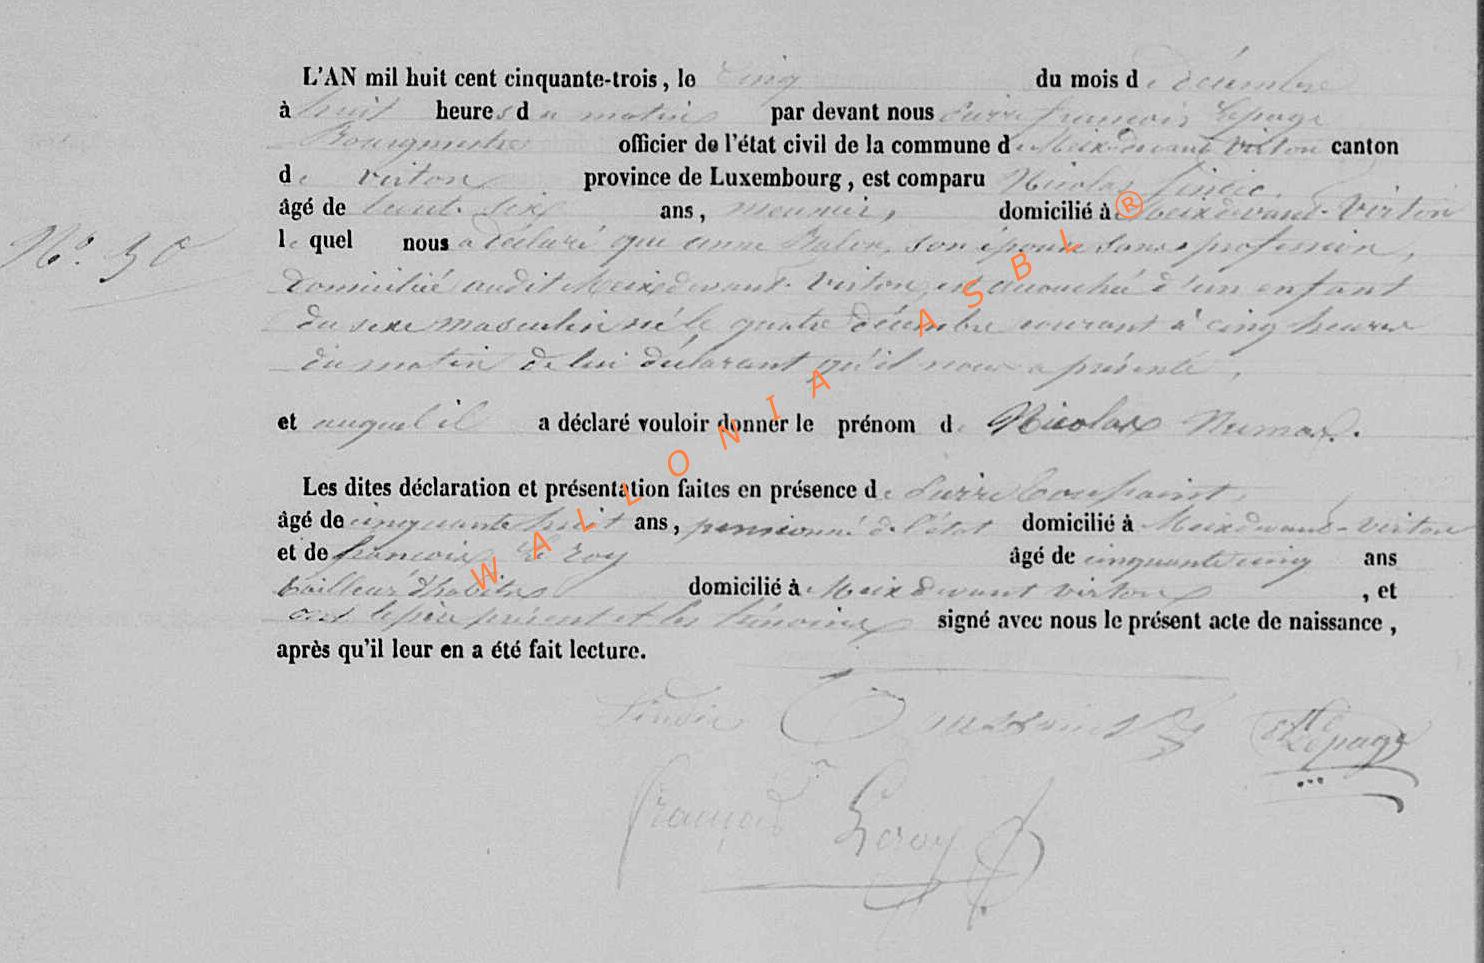 L'AN mil huit cent cinquante-trois, le Cinq du mois de décembre
à huit heures du matin par devant nous Pierre françois Lepage
Bourgmestre officier de l'état civil de la commune de Meixdevant Virton canton
de virton province de Luxembourg, est comparu Nicolas
âgé de six ans, meunier, domicilié à Meixdevant-Virton
le quel nous a déclaré que anne son épouse sans profession,
N°. 30
domiciliée audit Meixdevant-Virton, est accouchée d'un enfant
du sexe masculin né le quatre décembre courant à cinq heures
du matin de lui déclarant qu'il nous a présenté,
et auquel il a déclaré vouloir donner le prénom de Nicolas Numa.
Les dites déclaration et présentation faites en présence de Pierre
âgé de cinquante huit ans, pensionné de l'état domicilié à Meixdevant-virton
et de françois Le roy âgé de cinquante cinq ans
tailleur d'habits domicilié à Meix devant virton, et
ont le père présent et les témoins signé avec nous le présent acte de naissance,
après qu'il leur en a été fait lecture.
Lepage
françois Leroy
WALLONIA ASBL ®